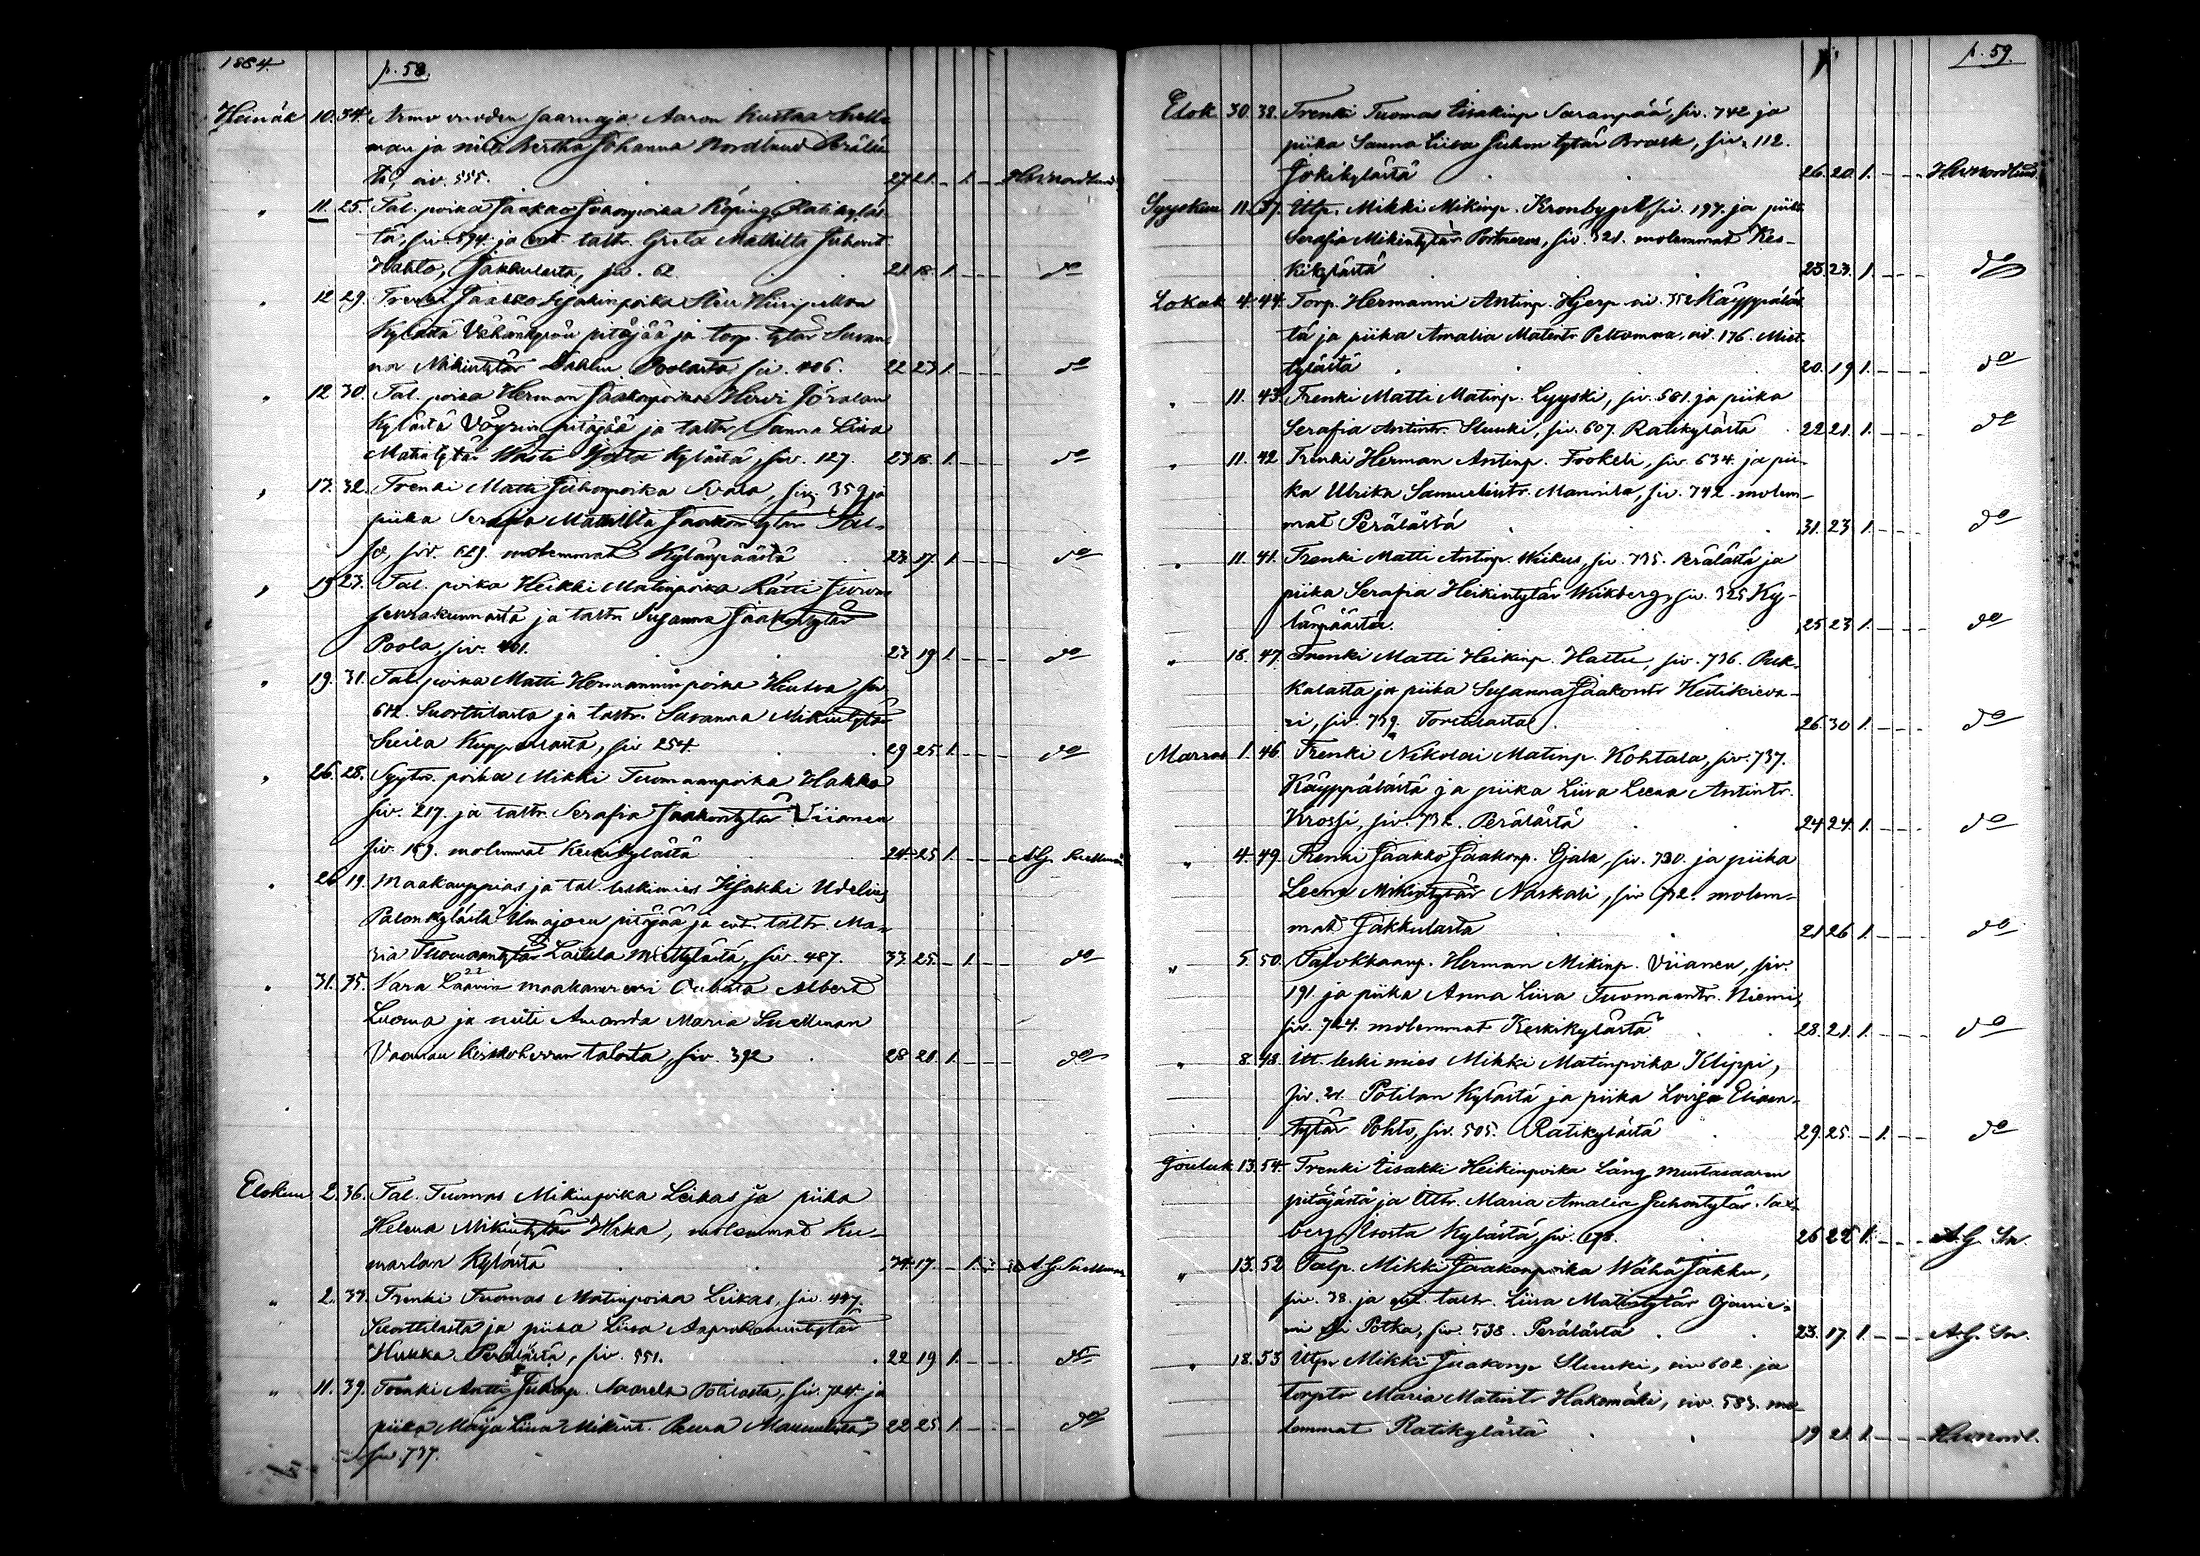 1884.
p. 58.
Heinäk 10. 34. Armo vuoden saarnaja Aaron Kustaa
man ja neiti Bertha Johanna Nordlund Perälä
siv. 555. 27 21 - 1 - - Nordlund
" 11. 25. Tal. poika Jaakko Juhonpoika Röping Ratikyläs
tä, siv. 594 ja ent. taltr. Greta Mathilta Juhont
Hahto, Jakkulasta, siv. 62 21 18. 1. - - - do
" 12 29. Trenki Jaakko Iisakinpoika Hiiripellon
Kylästä Vähänkyrön pitäjää ja torp. tytär Susan
na Mikintytär Dahlin Poolasta siv. 406. 22 23 1. - - - do
" 12 30. Tal. poika Herman Jaakonpoika Hirvi
Kylästä Vöyrin pitäjää ja taltr Sanna Liisa
Matintytär Kylästä, siv. 127. 23 18. 1. - - - do
" 17. 32. Trenki Matti Juhonpoika siv. 359 ja
piika Serafia Mathilta Jaakontytär
siv. 629. molemmat Kylänpäästä 23. 17. 1. - - - do
" 19 23. Tal. poika Heikki Matinpoika Rätti
seurakunnasta ja taltr Susanna Jaakontytär
Poola, siv. 401. 23 19 1. - - - do
" 19. 31. Tal. poika Matti Hermanninpoika siv
612. Suorttilasta ja taltr. Susanna Mikintytär
Kuppalasta, siv 254. 29 25. 1. - - - do
" 26. 28. Syytin. poika Mikki Tuomaanpoika Hakko
siv. 217. ja taltr. Serafia Jaakontytär Viianen
siv. 169. molemmat Keskikylästä 24 25 1. - - - A.G.
" 26 19. Maakauppias ja tal. leskimies Iisakki Udelius
Palonkylästä Ilmajoen pitäjää ja ent. taltr. Ma-
ria Tuomaantytär Laitila Miettylästä, siv. 487. 33. 25. - 1. - - do
" 31. 35. Vara Läänin maakamreeri Albert
Luoma ja neiti Amanda Maria Snellman
Vaanan kirkkoherran talosta, siv. 392 28 21. 1. - - - do
Elokuu 2. 36. Tal. Tuomas Mikinpoika Leikas ja piika
Helena Mikintytär Haka, molemmat Ku-
marlan Kylästä 34 17. - 1. A.G. Snellman
" 2. 33. Trenki Tuomas Matinpoika Leikas, siv. 447
Suorttilasta ja piika Liisa
Hukka Perälästä, siv. 551. 22 19 1. - - - do
" 11. 39. Trenki Antti Juhonp. Saarela Potilasta, siv. 724. ja
piika Maija Liisa Mikint. 22 25. 1. - - - do
siv. 737.
p. 59.
Elok 30. 38. Trenki Tuomas Iisakinp Saranpää, siv. 742 ja
piika Sanna Liisa Juhontytär Brask, siv. 112.
Jokikylästä 26. 20. 1. - - - Nordlund
Syyskuu 11. 37. Itlp. Mikki Mikinp. Kronby siv. 197. ja piika
Serafia Mikintytär Portnerus, siv. 321. molemmat Kes-
kikylästä 23 23. 1. - - - do
Lokak 4. 44. Torp. Hermanni Antinp. Hjerp siv. 352 Käyppäläs
tä ja piika Amalia Matintr Peltomaa, siv. 176. Miet
tylästä 20. 19 1. - - - do
" 11. 43. Trenki Matti Matinp. Lyyski, siv. 581. ja piika
Serafia Antintr. Sluuki, siv. 607. Ratikylästä 22 21. 1. - - - do
" 11. 42 Trenki Herman Antinp. Fookeli, siv. 634. ja pii-
ka Ulrika Samuelintr. Mannila, siv. 742. molem-
mat Perälästä 31. 23 1. - - - do
" 11. 41. Trenki Matti Antinp. Wiikus, siv. 735. Perälästä ja
piika Serafia Heikintytär Wiikberg, siv. 325 Ky-
länpäästä. 25 23 1. - - - do
" 18. 47. Trenki Matti Heikinp. Hattu, siv. 736. Puk-
kalasta ja piika Susanna Jaakontr Kestikieva-
ri, siv. 739. Torttilasta 26. 30 1. - - - do
Marras 1. 46. Trenki Nikolai Matinp. Kohtala, siv. 737.
Käyppälästä ja piika Liisa Leena Antintr.
Krossi, siv. 732. Perälästä 24 24. 1. - - - do
" 4. 49. Trenki Jaakko Jaakonp. Ojala, siv. 730. ja piika
Leena Mikintytär Naskali, siv 92. molem-
mat Jakkulasta 21 26 1. - - - do
" 5. 50. Talokkaanp. Herman Mikinp. Viianen, siv.
191 ja piika Anna Liisa Tuomaantr. Niemi,
siv. 744. molemmat Keskikylästä 28. 21. 1. - - - do
" 8. 48. Itt. leskimies Mikki Matinpoika Klippi,
siv. 21. Potilan Kylästä ja piika Loviisa Eliaan-
tytär Pohto, siv. 505. Ratikylästä 29. 25. - 1. - - do
Jouluk 13. 54. Trenki Iisakki Heikinpoika Lång Mustasaaren
pitäjästä ja Ittr. Maria Amalia Juhontytär
berg Kylästä, siv. 678. 26 22 1. - - - A.G. Sn.
" 13. 52 Talp. Mikki Jaakonpoika Wähä Jakku,
siv. 38. ja ent. taltr. Liisa Matintytär Ojanie-
mi Potka, siv. 538. Perälästä 23. 17. 1. - - - A.G. Sn.
" 18. 53 Itlp. Mikki Jaakonp Sluuki, siv 602. ja
torptr Maria Matintr Hakomäki, siv. 583. mo
lemmat Ratikylästä 19 21. 1. - - -